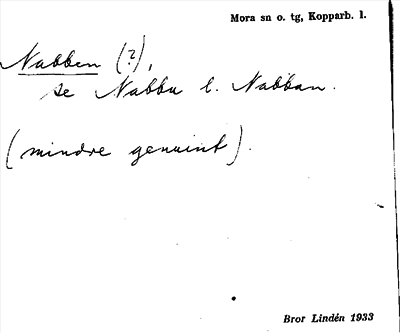 Mora sn o. tg, Kopparb. l.
Nabben (?),
se Nabbu l. Nabban.
(mindre genuint).
Bror Lindén 1933